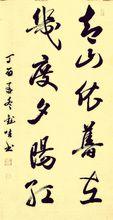 青山依旧在
几度夕阳红
丁酉年冬